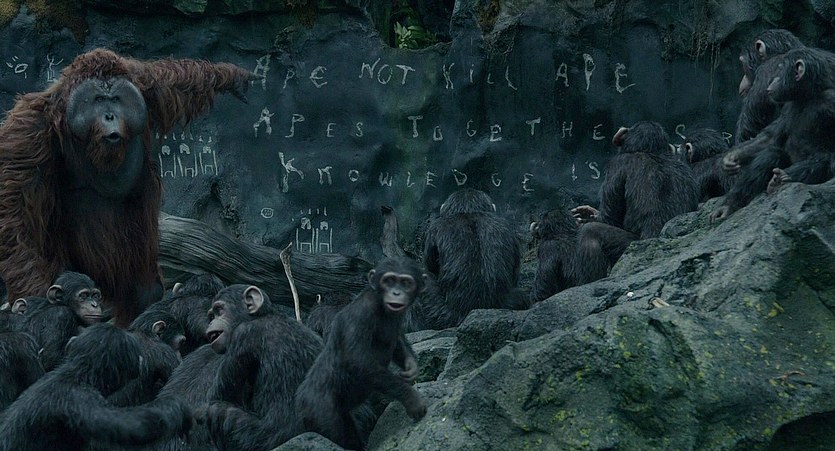 APE NOT KILL APE
APES TOGETHE
KNOWLEDGE IS